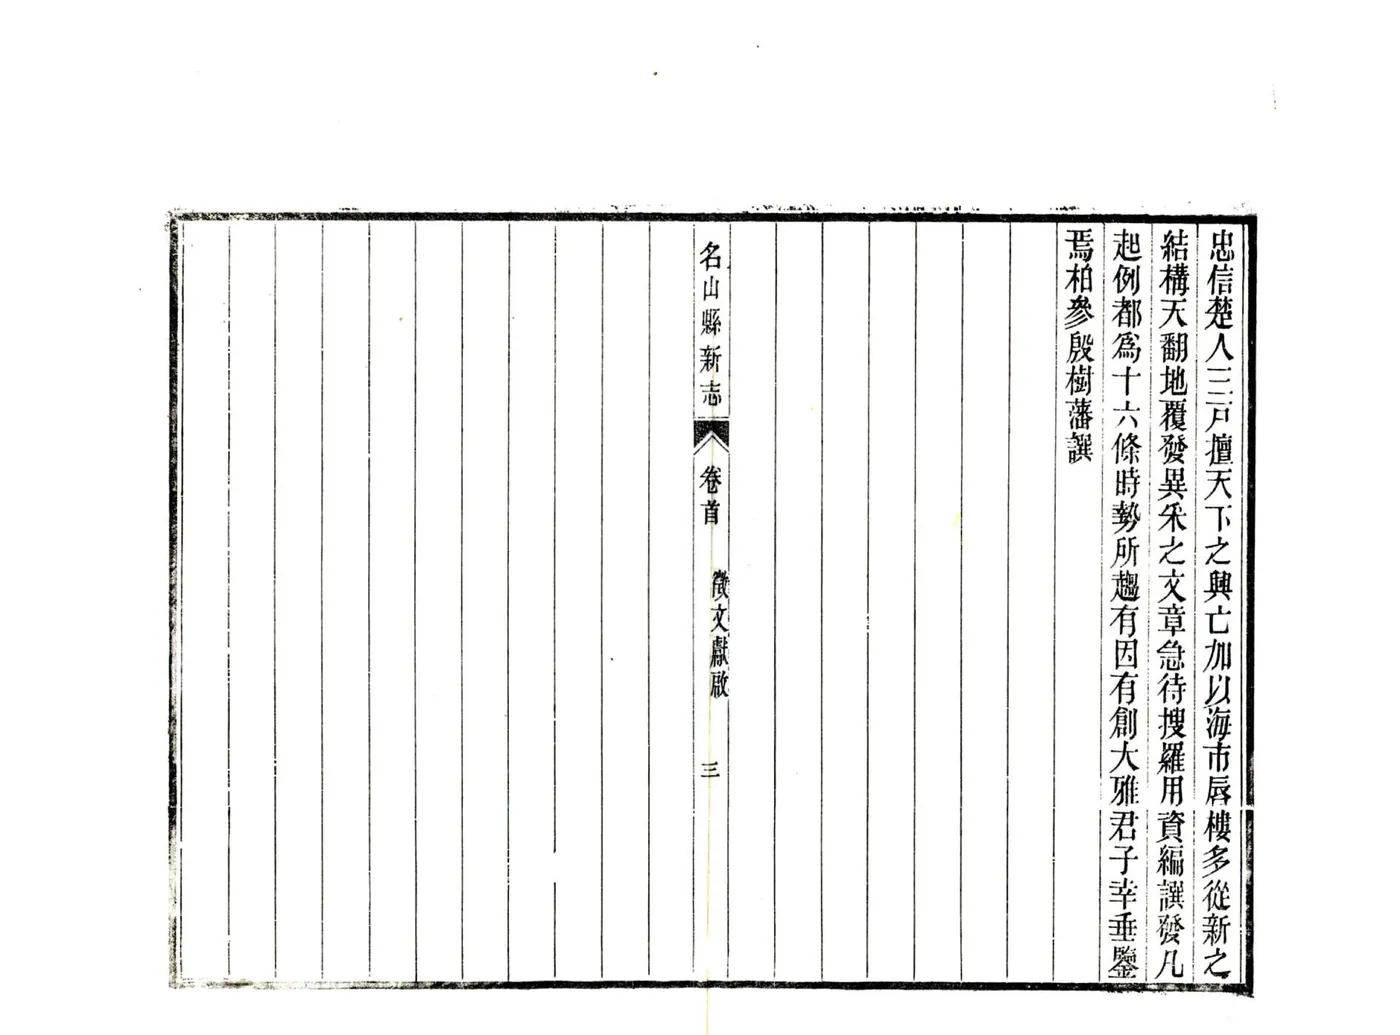 忠信楚人三戸擅天下之興亡加以海市唇樓多從新之
結構天翻地覆發異采之文章急待搜羅用資編譔發凡
起例都爲十六條時勢所趨有因有創大雅君子幸垂鑒
焉柏參殷樹藩譔
名山縣新志
卷首
徵文獻啟
三